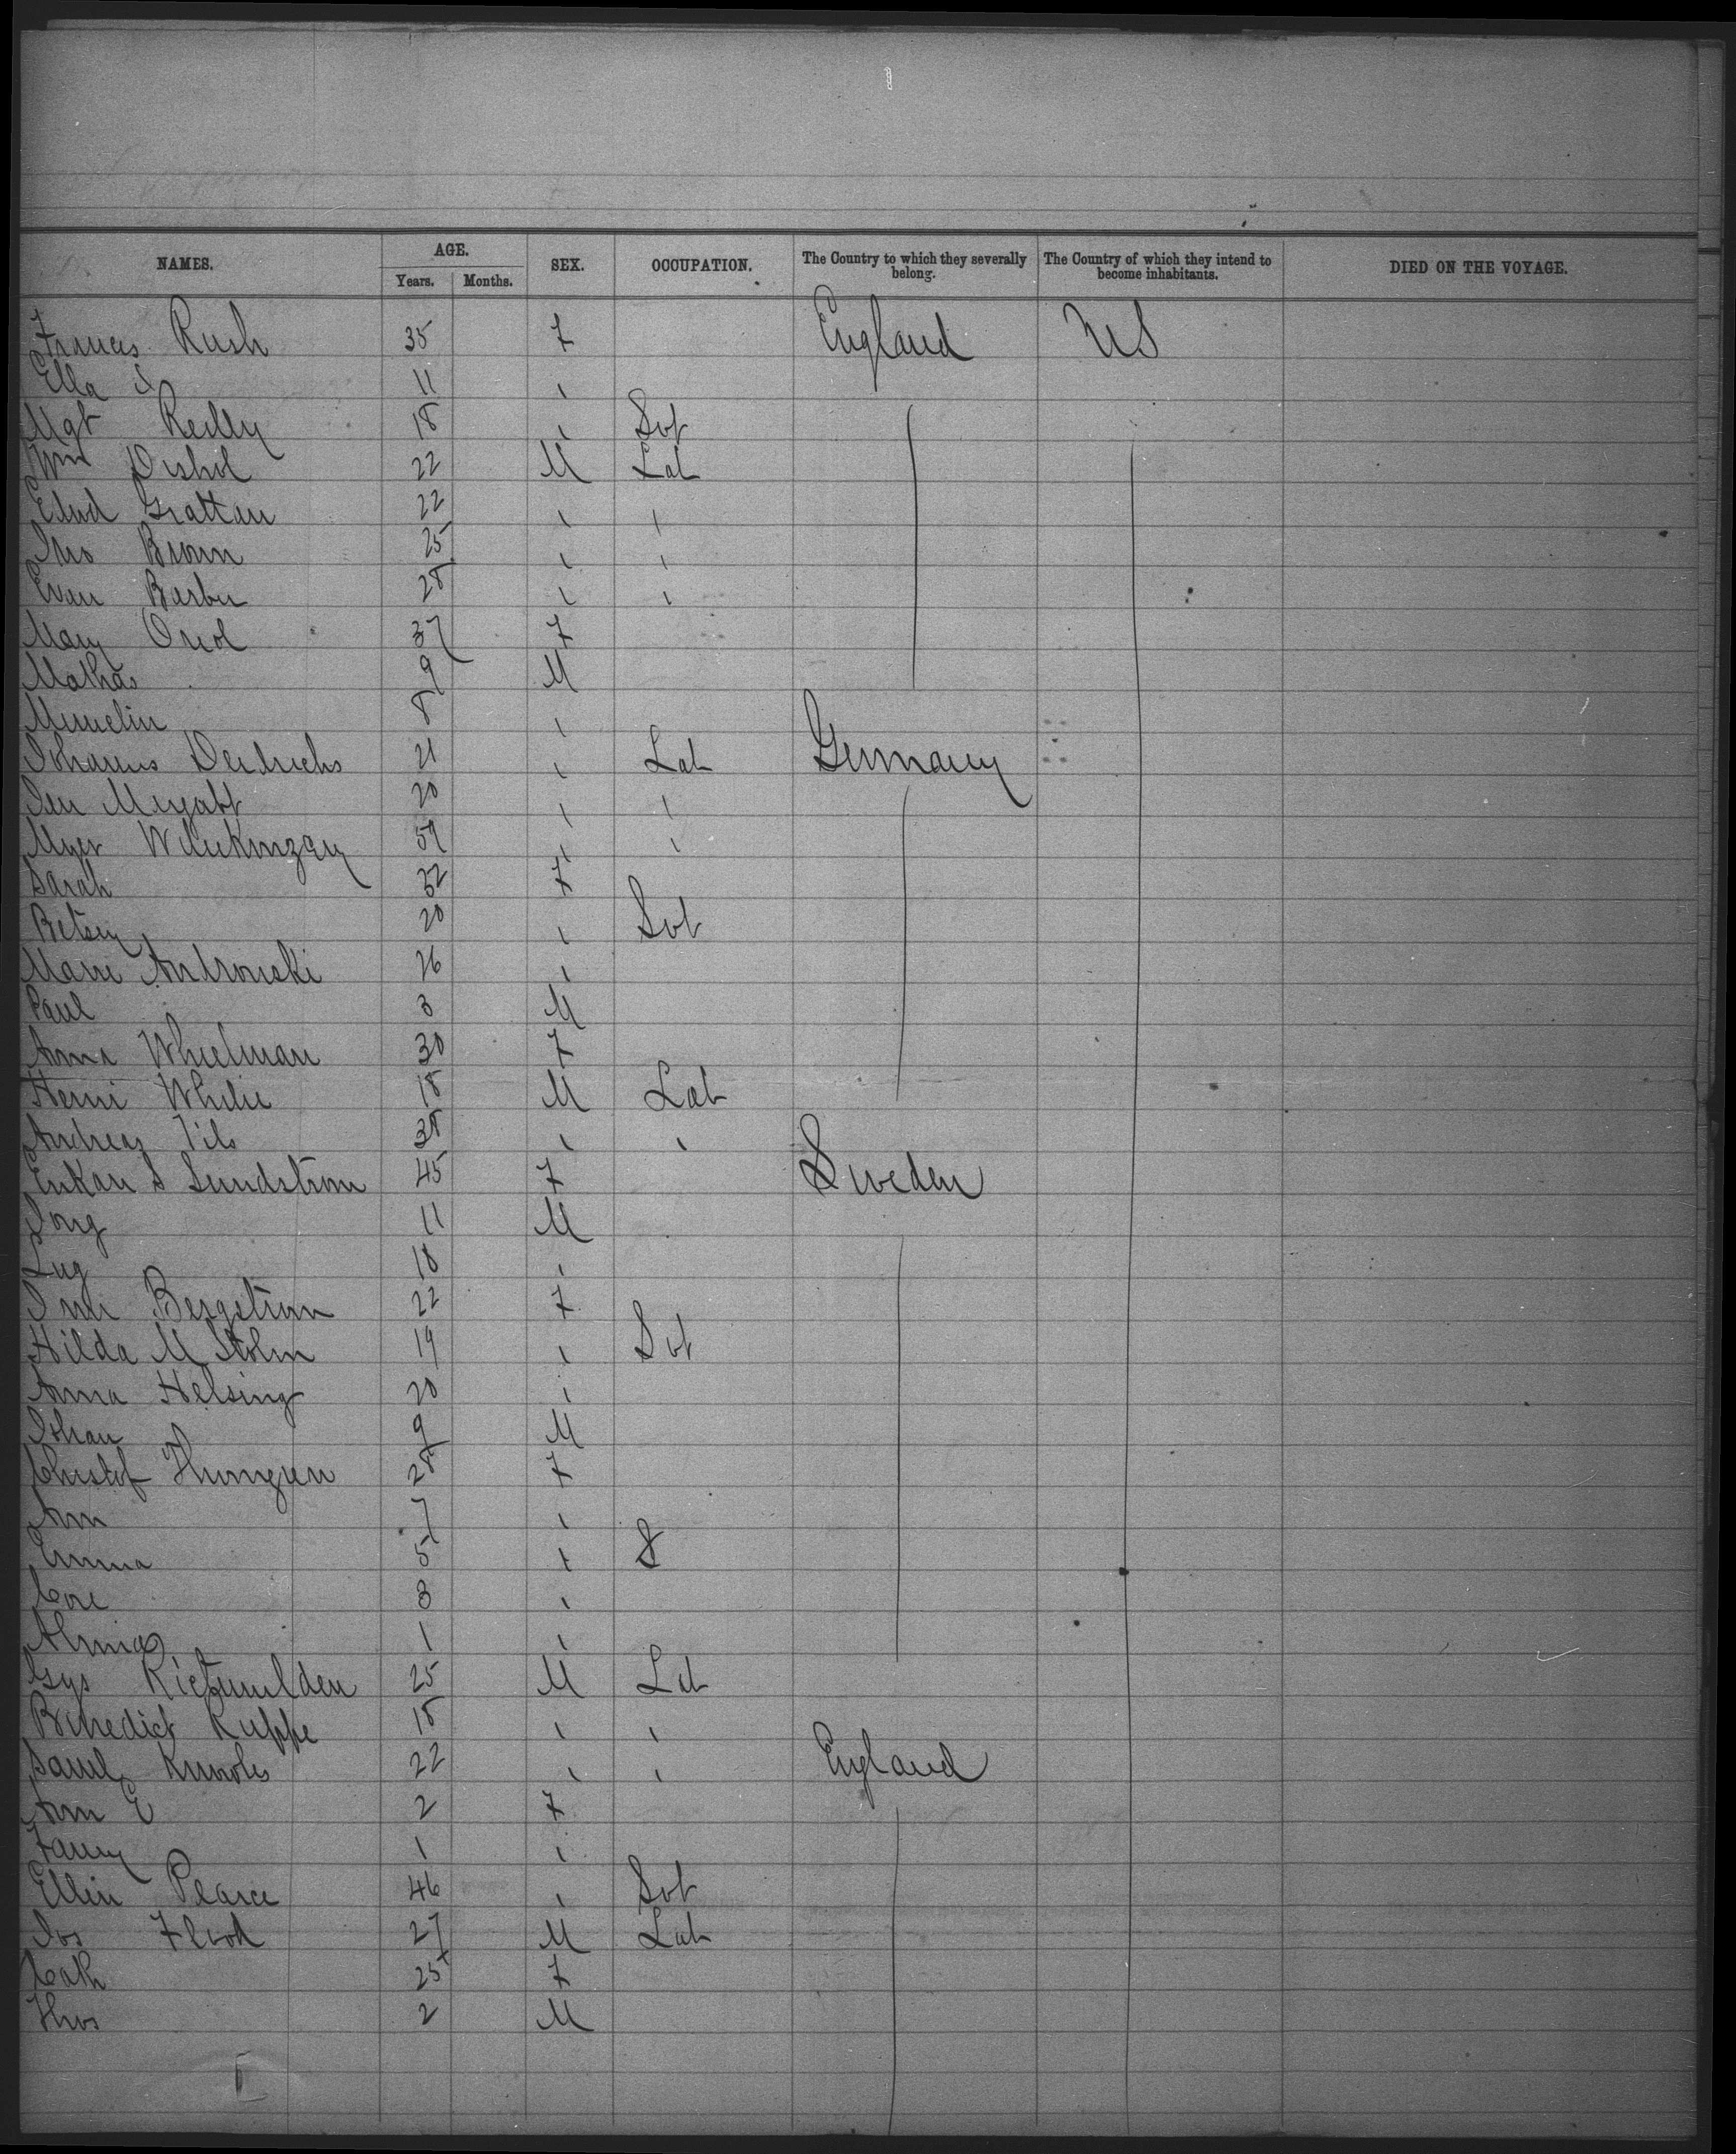 NAMES. AGE. SEX. OCCUPATION. The Country to which they severally belong. The Country of which they intend to become inhabitants. DIED ON THE VOYAGE.
Years. Months.
Frances Rush 35 F England US
Ella 11 ı
Mgt Reilly 18 ı Svt
Wm 22 M Lab
Edwd Grattan 22 ı ı
Jno Brown 25 ı ı
Evan Barber 28 ı ı
Mary Oriol 37 F
Mathas 9 M
8 ı
Johannes Deidrichs 21 ı Lab Germany
20 ı ı
Myer 59 ı ı
Sarah 32 F
Betsey 20 ı Svt
Marie Androuski 26 ı
Paul 3 M
Anna Whielman 30 F
Henri 18 M Lab
Andreas Nils 38 ı ı
S Sundstrom 45 F Sweden
11 M
10 ı
Bergstrom 22 F
Hilda M Stolm 19 ı Svt
Anna Helsing 20 ı
Johan 9 M
Christof 28 F
Ann 7 ı
Emma 5 ı S
3 ı
1 ı
25 M Lab
Benedict Kuppe 18 ı ı
Saml Knowles 22 ı ı England
Ann E 2 F
Fanny 1 ı
Ellen Pearce 46 ı Svt
Jos Flood 27 M Lab
Cath 25 F
Thos 2 M